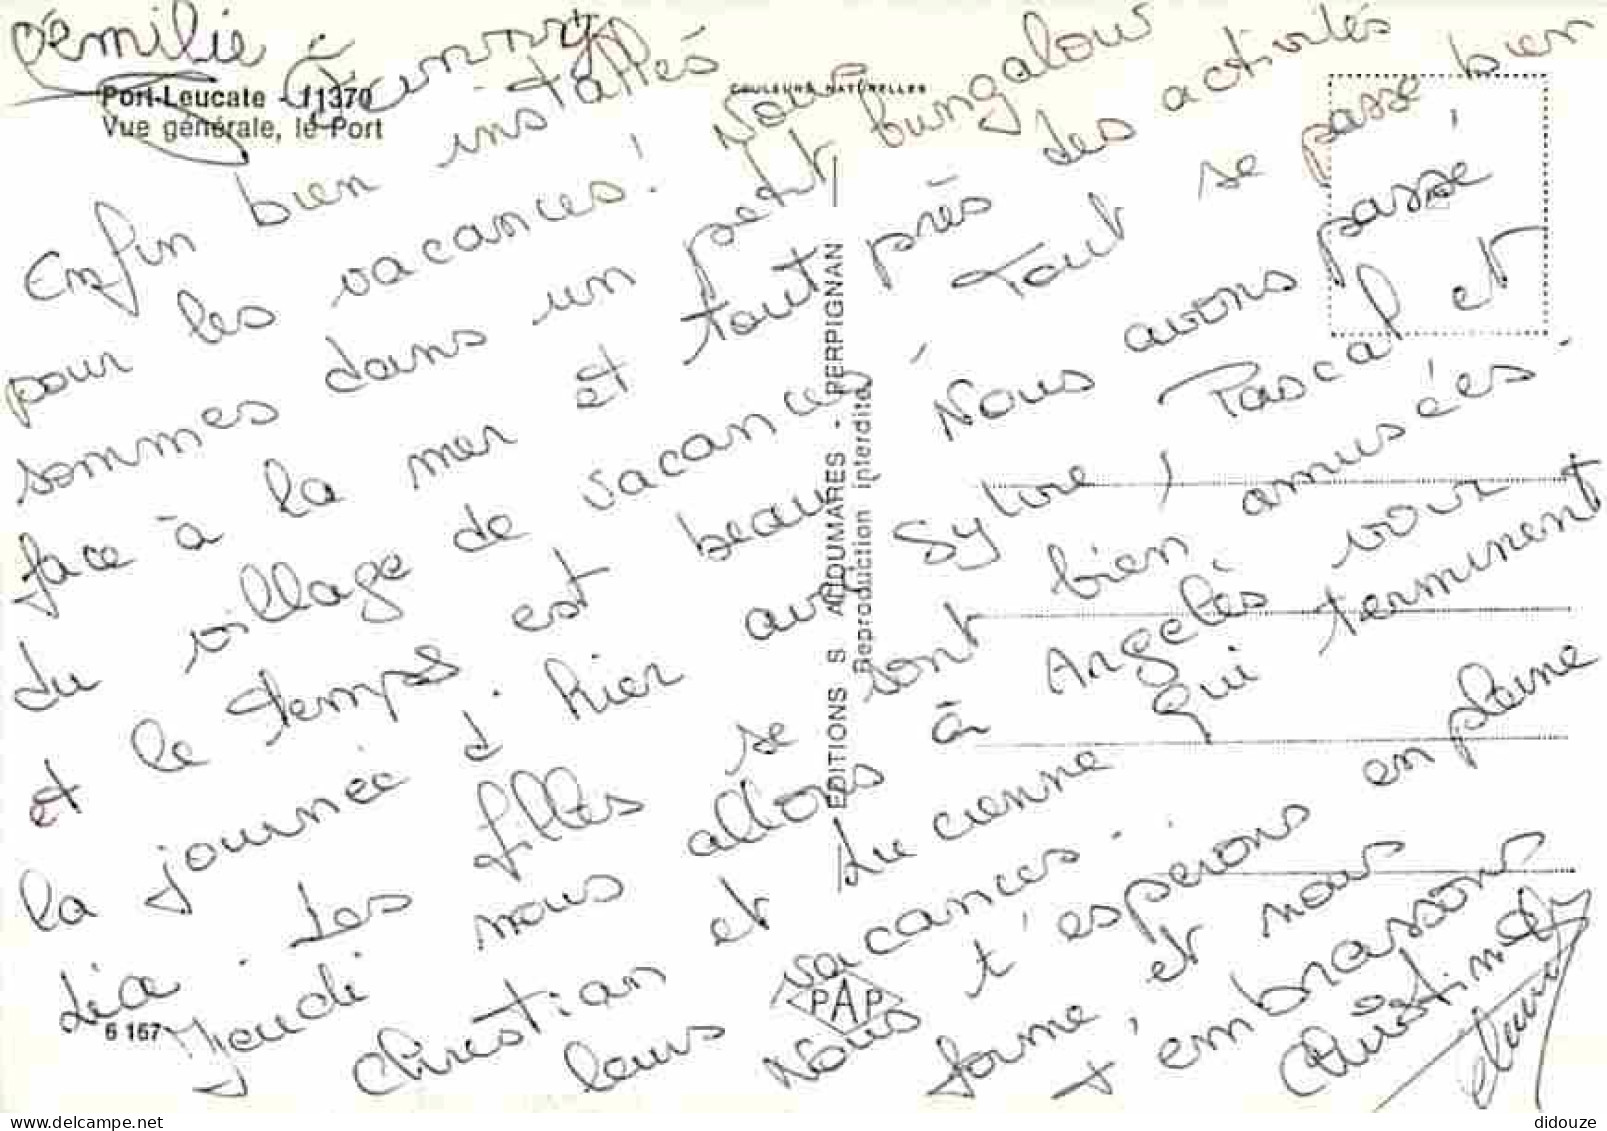 Émilie
Fanny
Port-Leucate - 11370
Vue générale, le Port
COULEURS NATURELLES
Enfin bien installés
pour les vacances! Nous
sommes dans un petit bungalow
face à la mer et tout près des activités
du village de vacances. Tout se passe bien
et le temps est beau. Nous avons passé
la journée d'hier avec Sylvie, Pascal et
Léa. Les filles se sont bien amusées.
Jeudi nous allons à Argelès voir
Christian et Lucienne qui terminent
leurs vacances.
Nous t'espérons en pleine
forme, et nous
t'embrassons
Christine
EDITIONS S. AIOUMARES - PERPIGNAN
Reproduction interdite
PAP
6 167
didouze